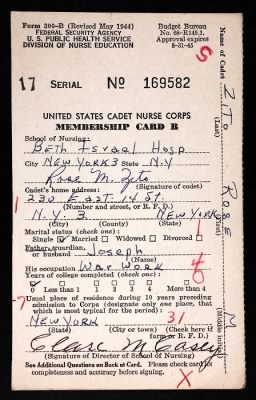 Form 300-B (Revised May 1944)
FEDERAL SECURITY AGENCY
U. S. PUBLIC HEALTH SERVICE
DIVISION OF NURSE EDUCATION
Budget Bureau
No. 68-R145.1.
Approval expires
8-31-45
5
17 SERIAL No 169582
UNITED STATES CADET NURSE CORPS
MEMBERSHIP CARD B
School of Nursing:
Beth Israel Hosp
City New York 3 State N.Y
Rose M. Zito
Cadet's home address: (Signature of cadet)
230 East 14 St.
(Number and street, or R. F. D.)
N.Y. 3. New York
(City) (County) (State)
Marital status (check one):
Single Married Widowed Divorced
Father, guardian,
or husband Joseph
(Name)
His occupation War Work
Years of college completed (check one):
0 Less than 1 1 2 3 4
Usual place of residence during 10 years preceding
admission to Corps (designate only one place, that
which is actual or legal residence):
New York 31
(State) (City or town) (Check here if
farm or R. F. D.)
Clare M Casey
(Signature of Director of School of Nursing)
See Additional Questions on Back of Card. Please check card for
completeness and accuracy before signing.
X
Name of Cadet
ZITO ROSE M
(Last) (First) (Middle initial)